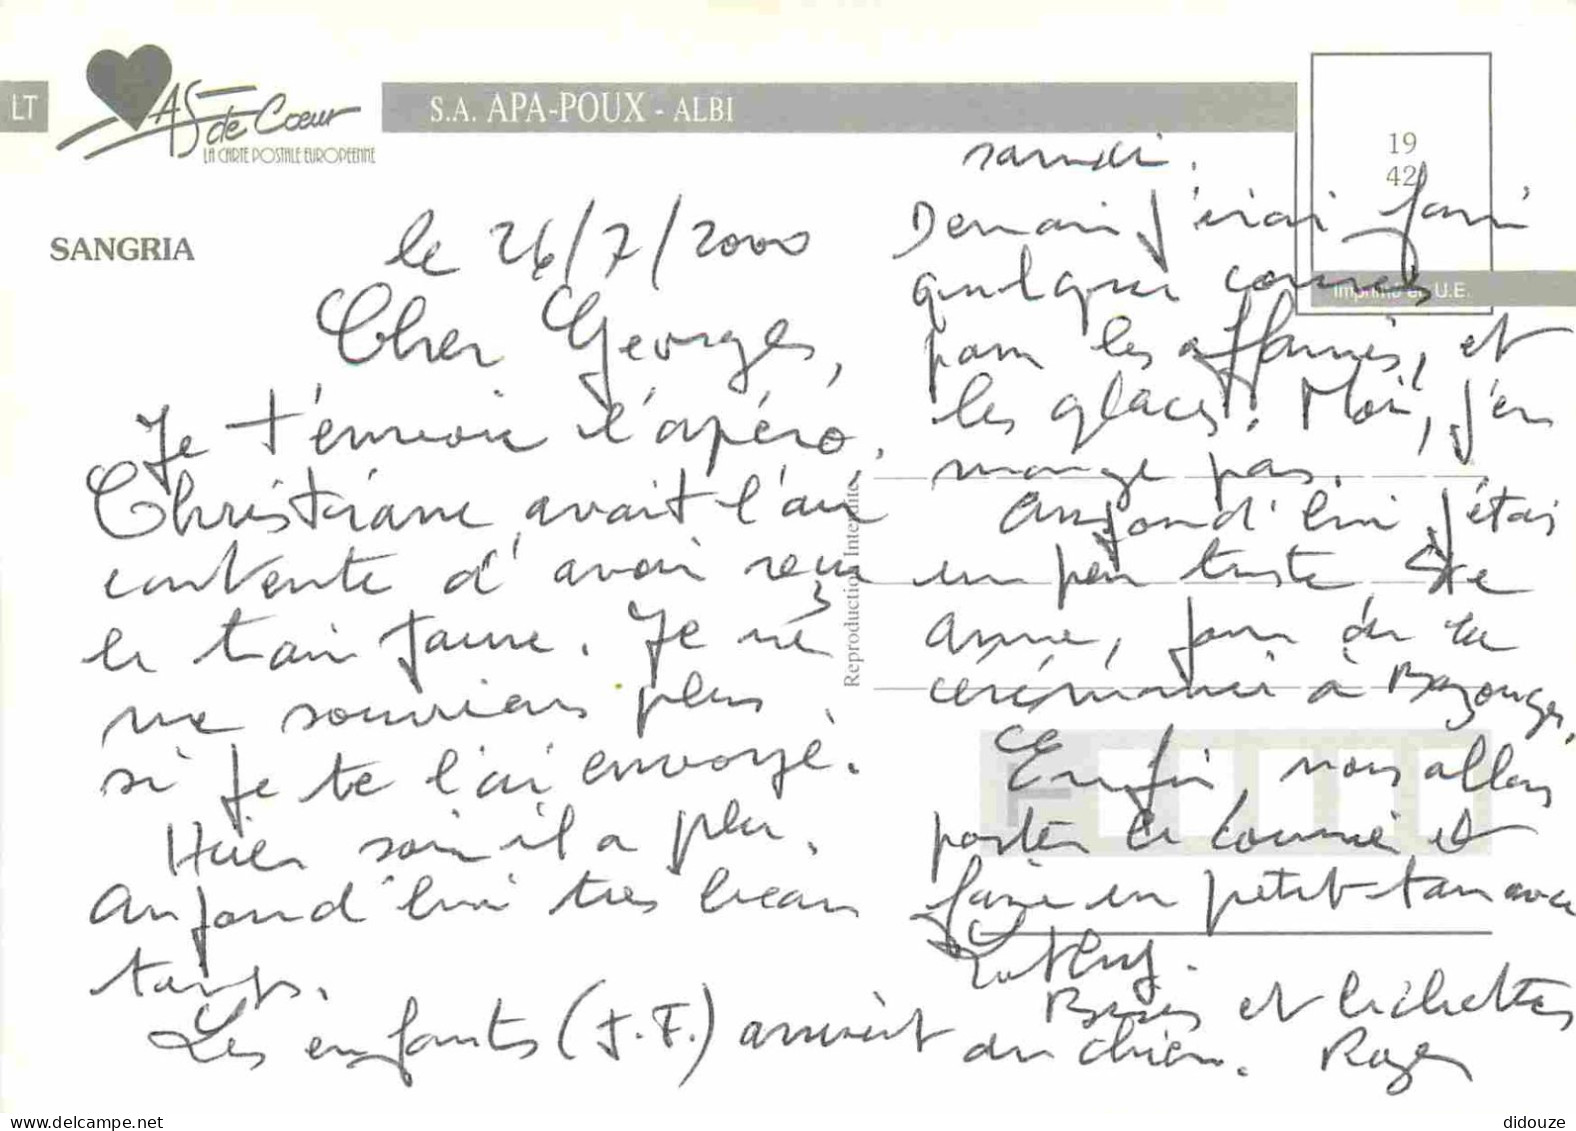 LT
AS de Cœur
LA CARTE POSTALE EUROPEENNE
S.A. APA-POUX - ALBI
19
42
SANGRIA
Imprimé en U.E.
Reproduction Interdite
le 26/7/2000
Cher Georges,
Je t'envoie l'apéro.
Christiane avait l'air
contente d'avoir reçu
le train jaune. Je ne
me souviens plus
si je te l'ai envoyé.
Hier soir il a plu,
aujourd'hui très beau
temps.
Les enfants (J.F.) arrivent
samedi.
Demain j'irai faire
quelques courses
pour les affamés, et
les glaces! Moi, j'en
mange pas.
Aujourd'hui j'étais
un peu triste Ste
Anne, jour de la
cérémonie à Bazouges.
Enfin, nous allons
porter le courrier et
faire un petit tour avec
Bises et lichettes
du chien. Roger
didouze